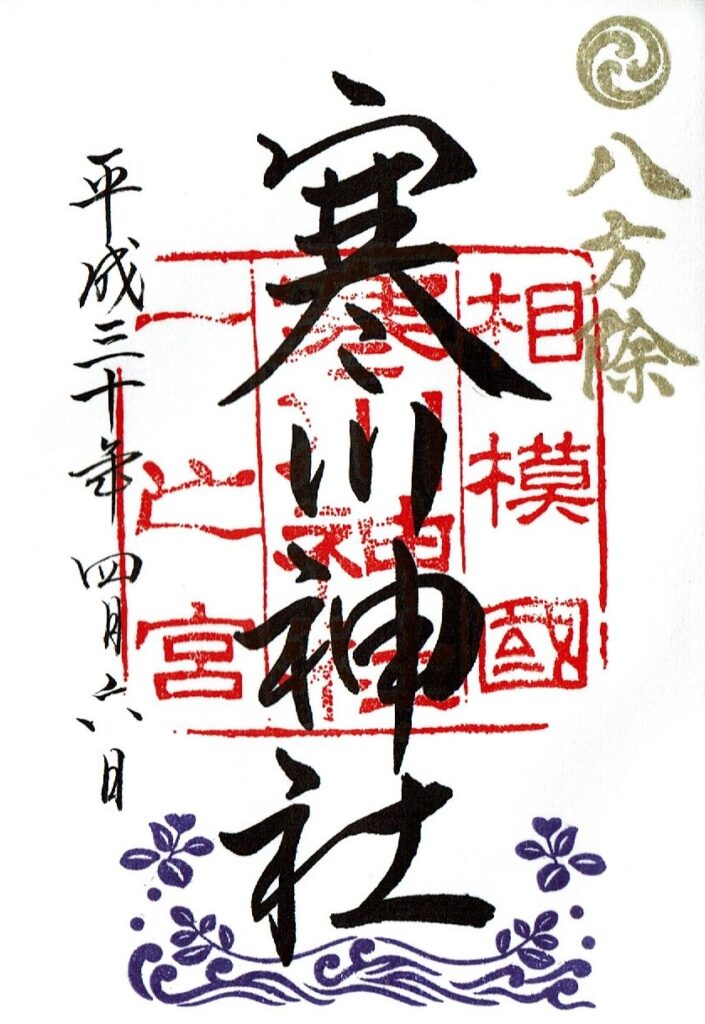 八方除
寒川神社
相模國
寒川神社
一之宮
平成三十年四月六日